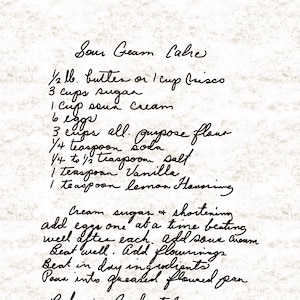 Sour Cream Cake
1/2 lb. butter or 1 cup Crisco
3 cups sugar
1 cup sour cream
6 eggs
3 cups all purpose flour
1/4 teaspoon soda
1/4 to 1/2 teaspoon salt
1 teaspoon Vanilla
1 teaspoon lemon Flavoring
Cream sugar & shortening
add eggs one at a time beating
well after each. Add sour cream
Beat well. Add flavorings
Beat in dry ingredients
Pour into greased floured pan